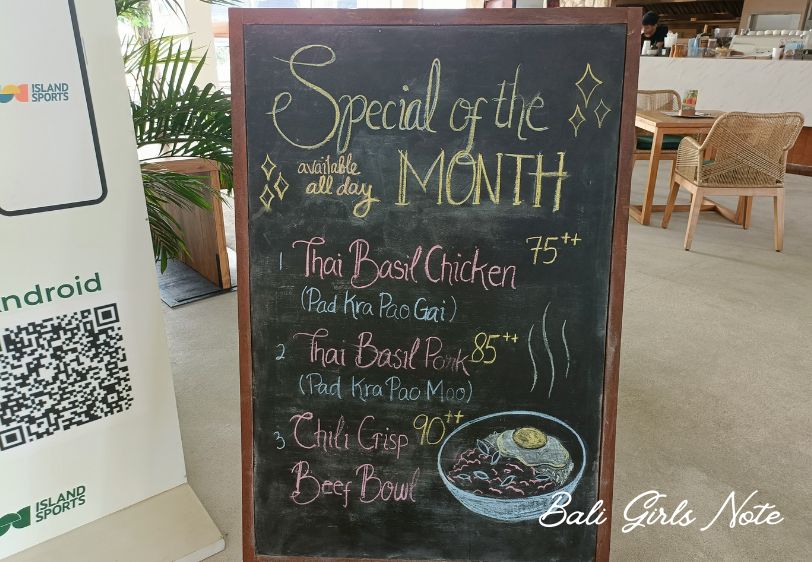 ISLAND
SPORTS
Special of the
available
all day
MONTH
1 Thai Basil Chicken 75++
(Pad Kra Pao Gai)
2 Thai Basil Pork 85++
(Pad Kra Pao Moo)
3 Chili Crisp 90++
Beef Bowl
ndroid
ISLAND
SPORTS
Bali Girls Note